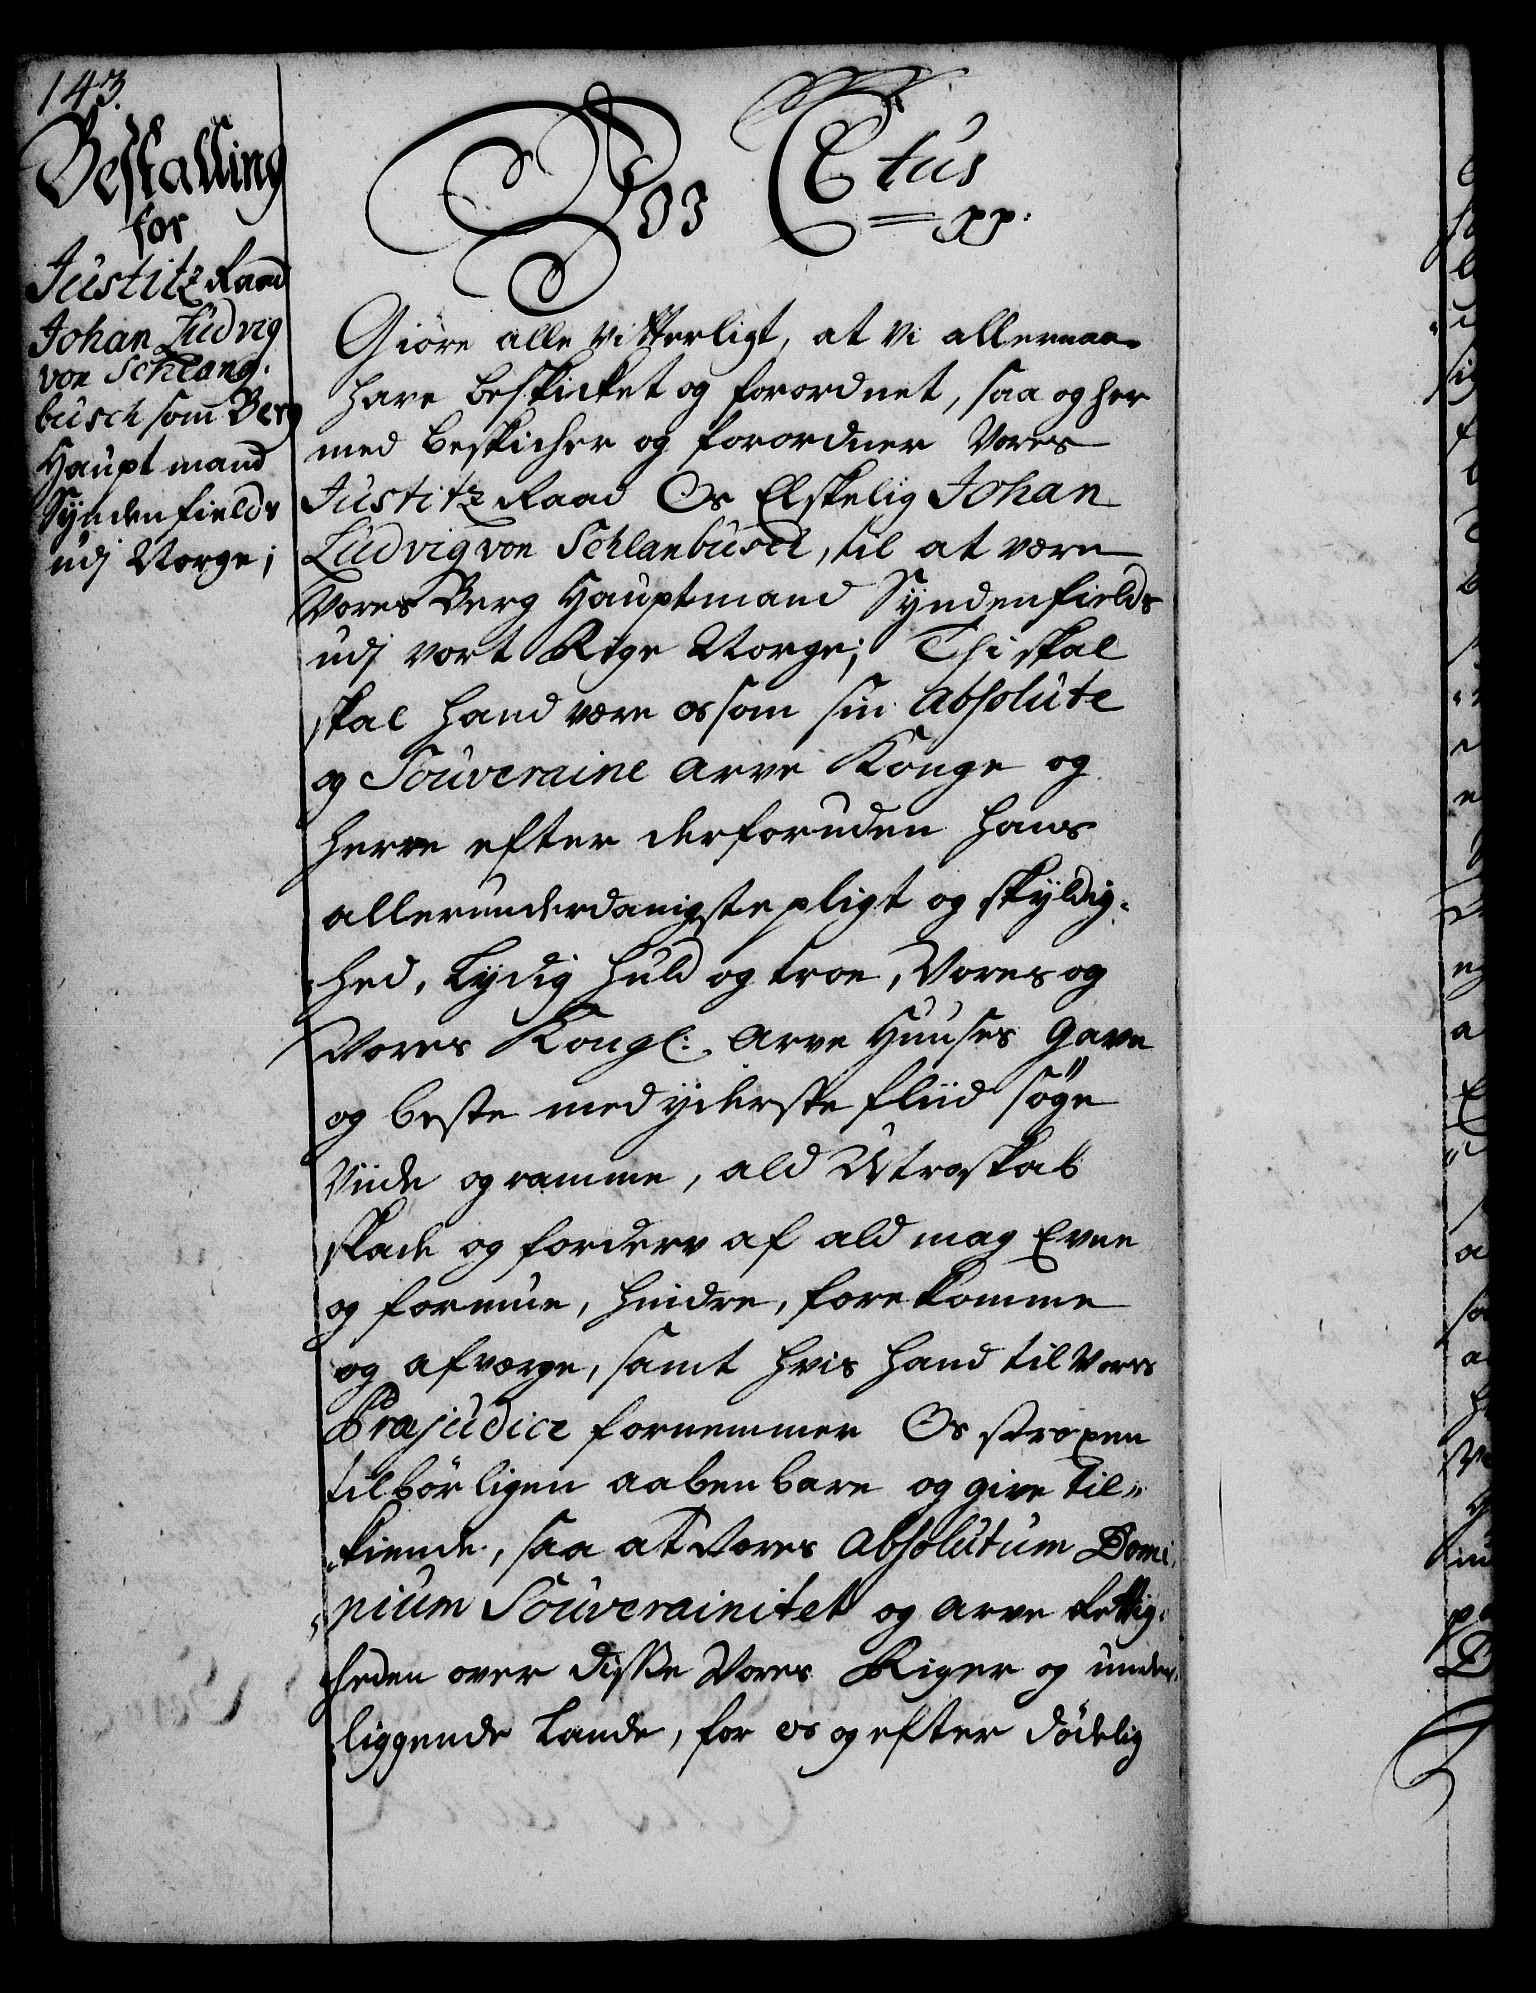 143.
Bestalling
for
Justitz Raad
Johan Ludvig
von Schlang.
busch som Berg
Hauptmand
Syndenfields
udj Norge;
Vos Ctus
pp:
Giöre alle vitterligt, at Vi allernaa.
have beskicket og forordnet, saa og her
med beskicher og forordner Vores
Justitz Raad Os Elskelig Johan
Ludvig von Schlanbusch, til at være
Vores Berg Hauptmand Syndenfields
udj vort Rige Norge; Thi skal
skal hand være os som sin absolute
og Souveraine Arve Konge og
Herre efter derforuden hans
allerunderdanigste pligt og skyldig-
hed, Lydig huld og troe, Vores og
Vores Kongl: Arve Huuses Gavn
og beste med yderste fliid söge
Viide og ramme, ald Utroskab
skade og forderv af ald mag Evne
og formue, hindre, forekomme
og afværge, samt hvis hand til Vores
Præjudice fornemmer Os straxen
tilbörligen aabenbare og give til„
kiende, saa at Vores absolutum Domi„
„nium Souverainitet og Arve Rettig„
heden over disse Vores Riger og under„
liggende Lande, for os og efter dödelig